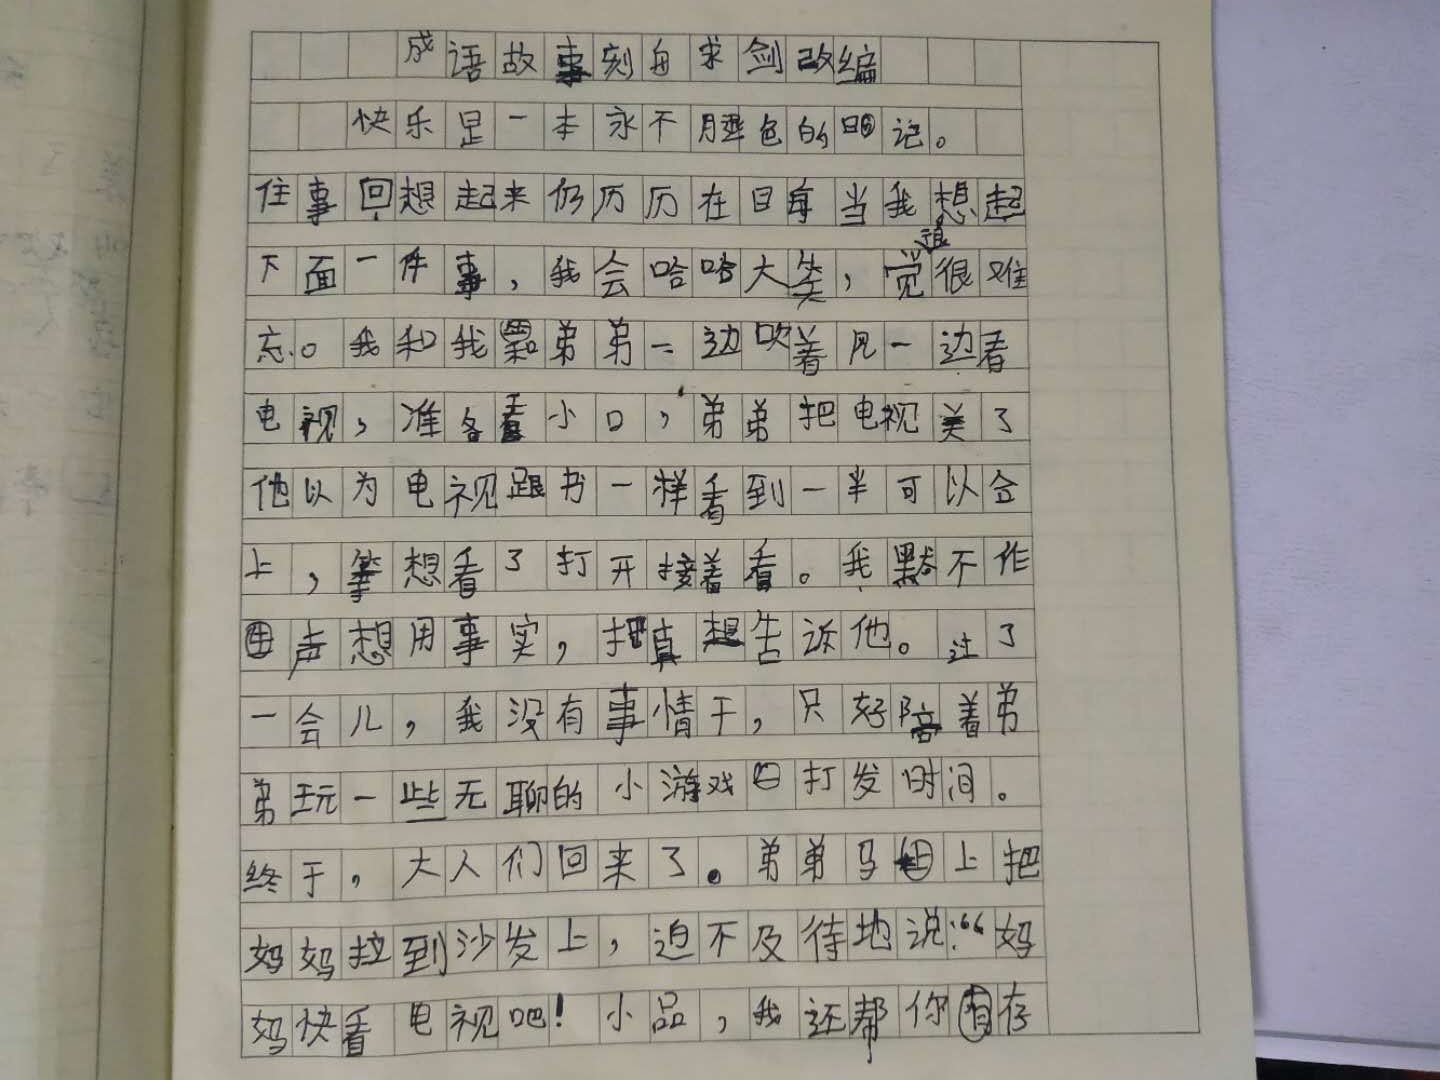 成语故事刻舟求剑改编
快乐是一本永不褪色的日记。
往事回想起来仍历历在目每当我想起
下面一件事，我会哈哈大笑，觉很难
忘。我和我弟弟一边吹着风一边看
电视，准备看小口，弟弟把电视关了
他以为电视跟书一样看到一半可以合
上，等想看了打开接着看。我默不作
声想用事实，把真想告诉他。过了
一会儿，我没有事情干，只好陪着弟
弟玩一些无聊的小游戏打发时间。
终于，大人们回来了。弟弟马上把
妈妈拉到沙发上，迫不及待地说：“妈
妈快看电视吧！小品，我还帮你存